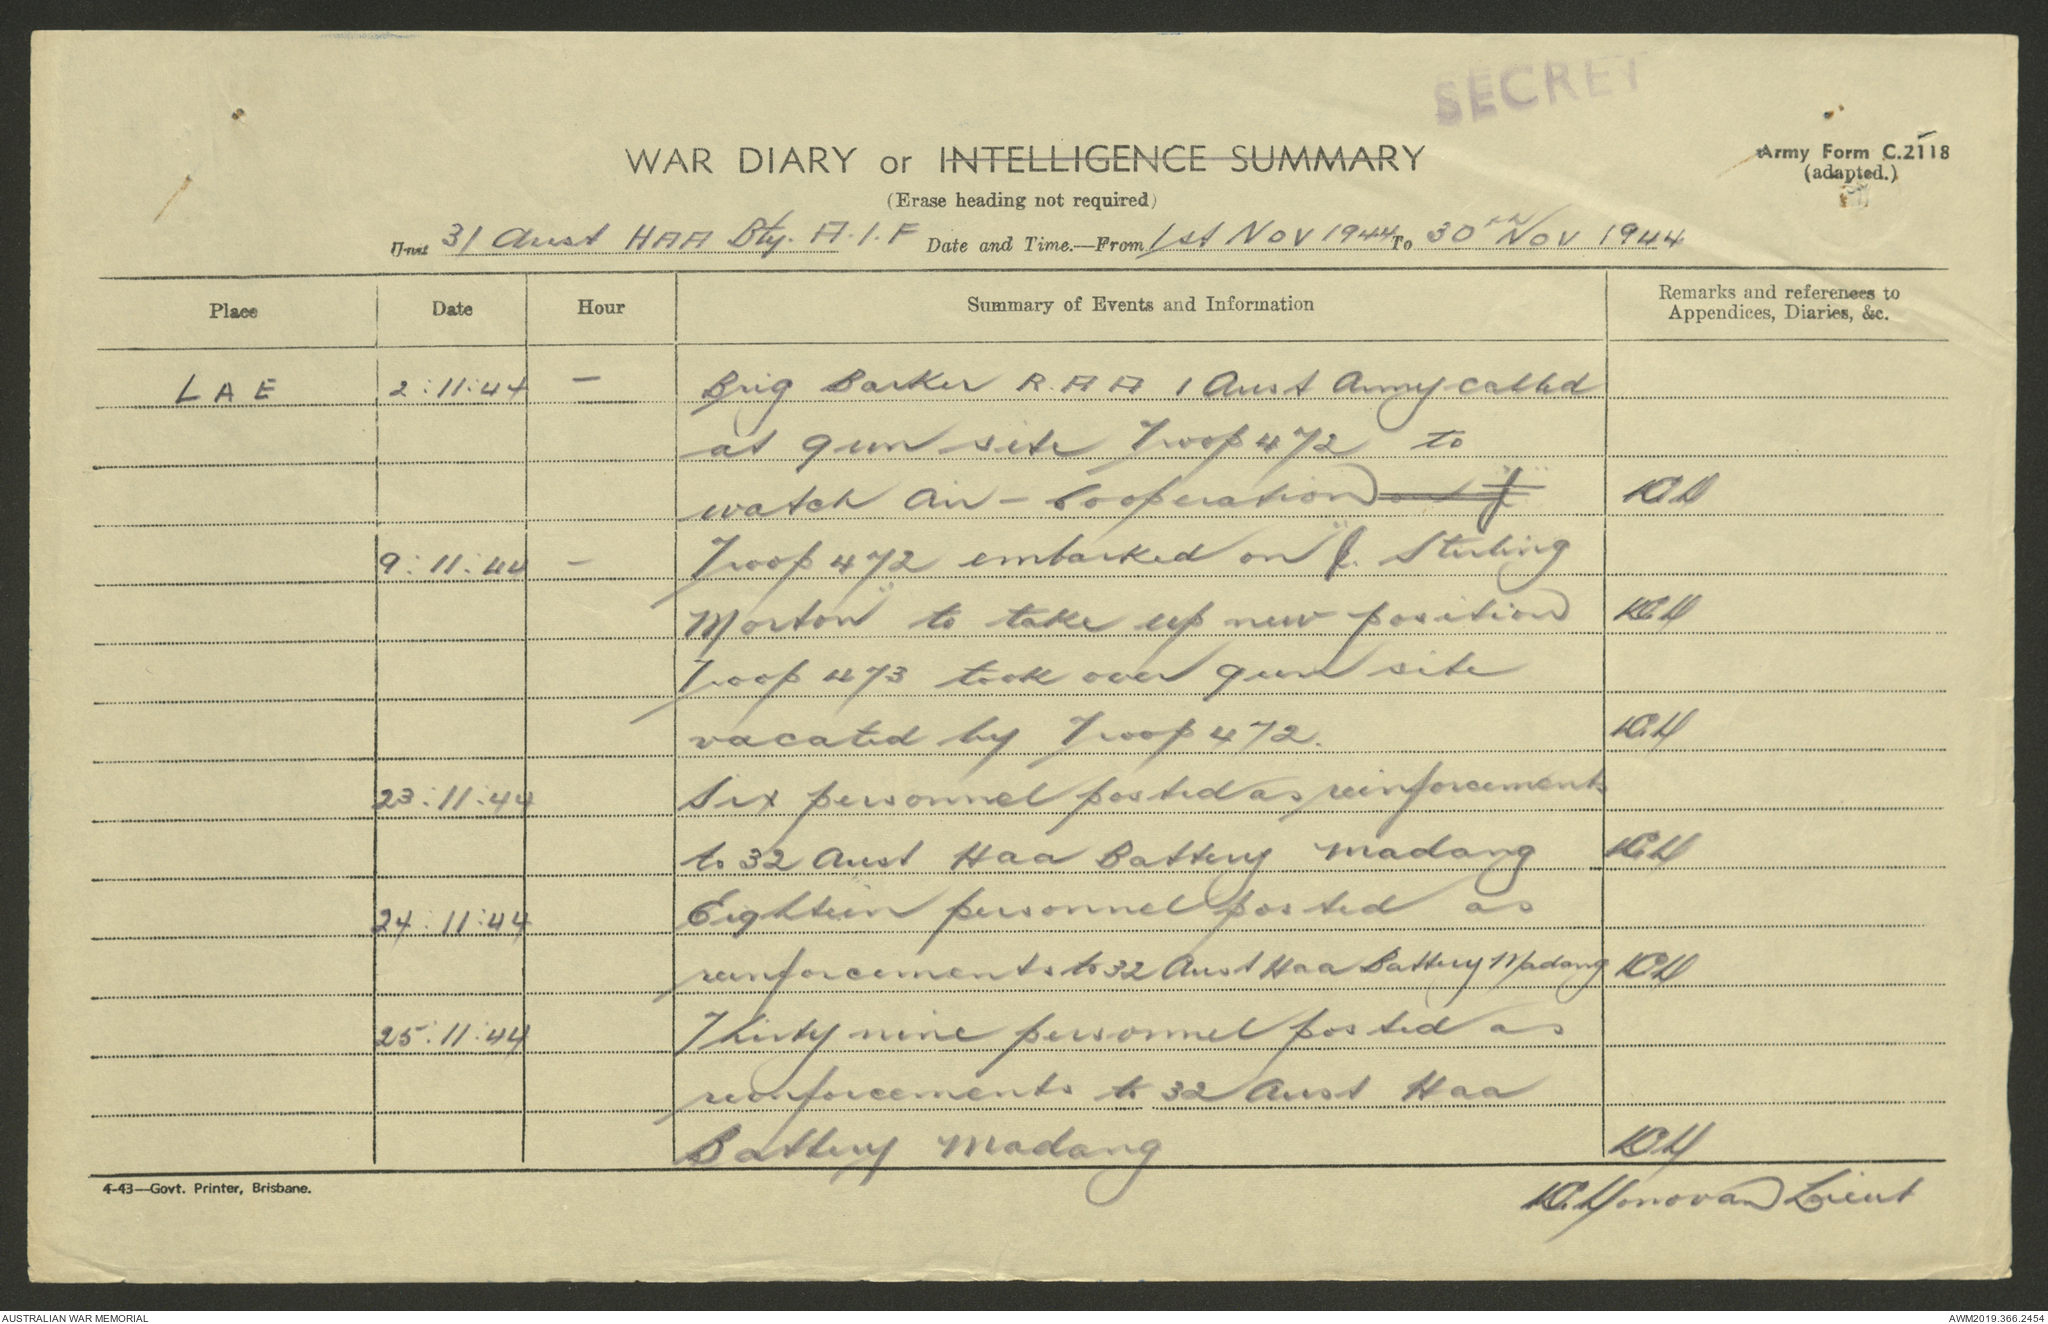 SECRET
WAR DIARY or INTELLIGENCE SUMMARY
Army Form C.2118
(adapted.)
(Erase heading not required)
Unit 31 Aust HAA Bty. A.I.F Date and Time.—From 1st Nov 1944 To 30th Nov 1944
Place Date Hour Summary of Events and Information Remarks and references to
Appendices, Diaries, &c.
LAE 2:11:44 — Brig Barker R.A A 1 Aust Army called
at gun site Troop 472 to
watch Air - Cooperation
9:11:44 — Troop 472 embarked on "J. Sterling
Morton" to take up new position
Troop 473 took over gun site
vacated by Troop 472.
23:11:44 Six personnel posted as reinforcements
to 32 Aust Haa Battery Madang
24:11:44 Eighteen personnel posted as
reinforcements to 32 Aust Haa Battery Madang
25:11:44 Thirty nine personnel posted as
reinforcements to 32 Aust Haa
Battery Madang
4-43—Govt. Printer, Brisbane.
Donovan Lieut
AUSTRALIAN WAR MEMORIAL
AWM2019.366.2454